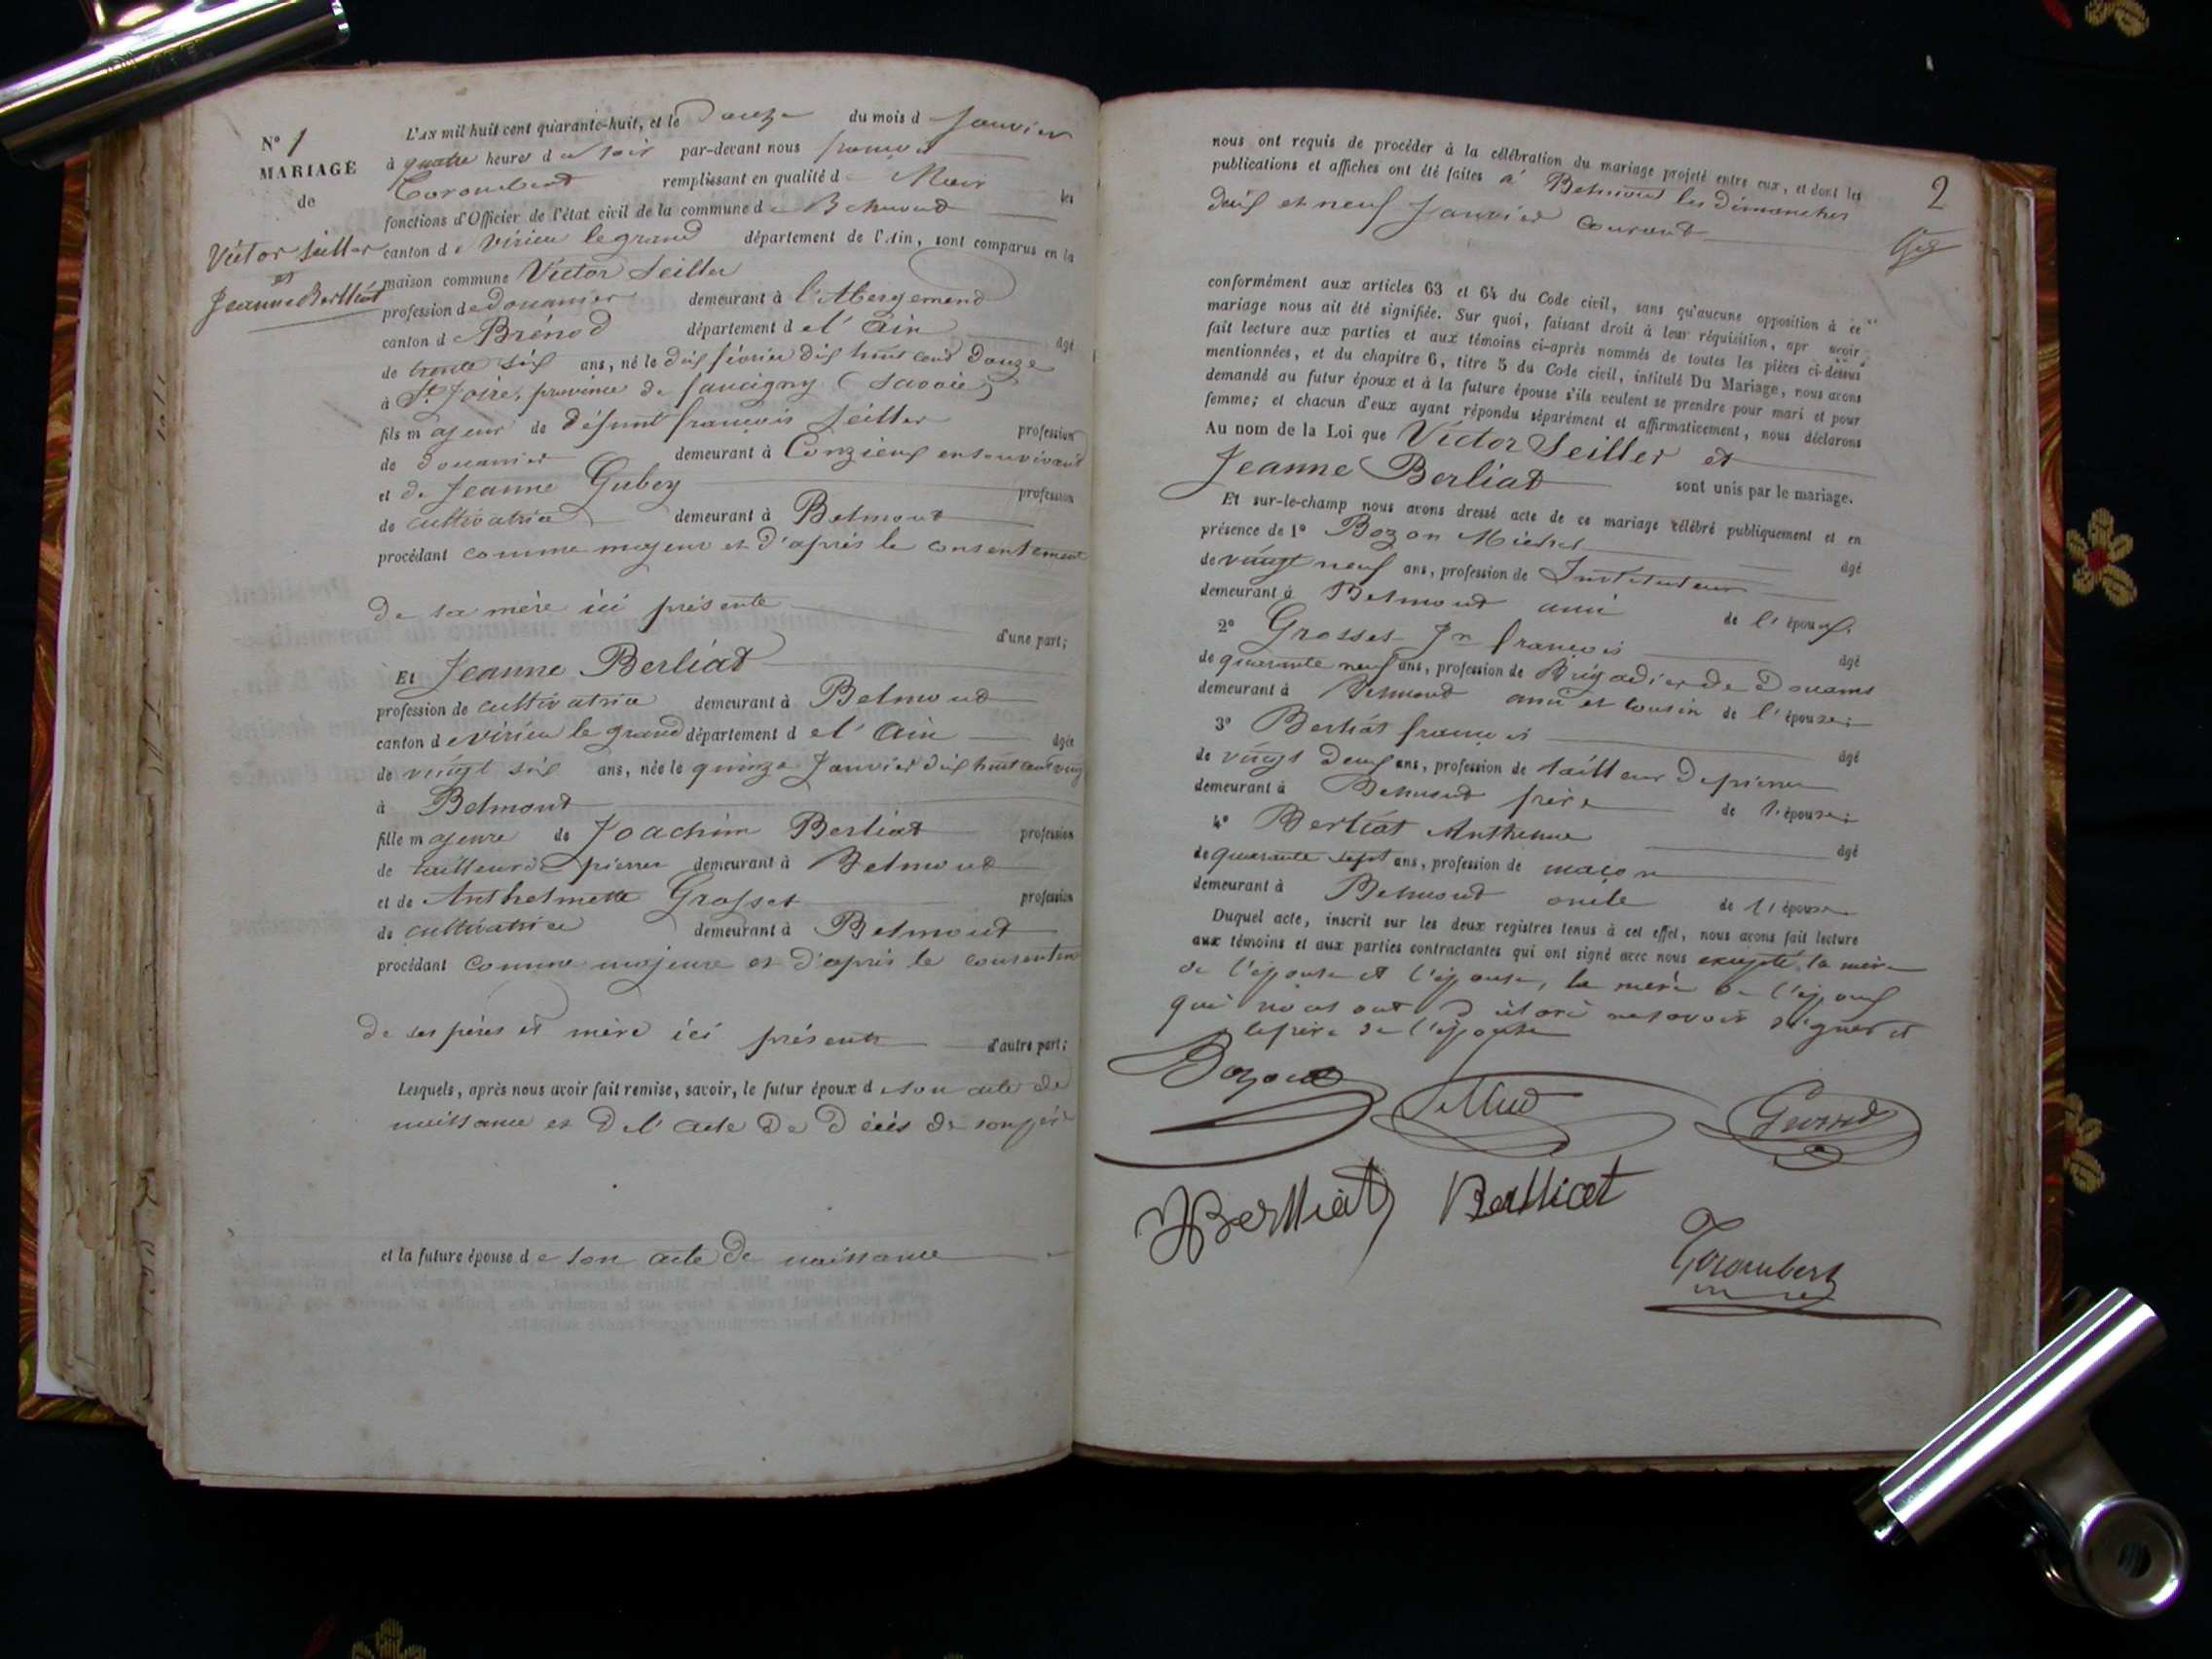 N° 1
MARIAGE
de
Victor Seiller
et
Jeanne Berlliat
L'AN mil huit cent quarante-huit, et le Douze du mois d Janvier
à quatre heures du soir par-devant nous françois
Corombert remplissant en qualité d Mair les
fonctions d'Officier de l'état civil de la commune de Belmond
canton de virieu le grand département de l'Ain, sont comparus en la
maison commune Victor Seiller
profession de douanier demeurant à l'Abergemend
canton d Brénod département de l'Ain âgé
de trente six ans, né le dix février dix huit cent Douze
à St Joire, province de faucigny (Savoie)
fils majeur de défunt françois Seiller profession
de douanier demeurant à Conzieux en son vivant
et de Jeanne Gubey profession
de cultivatrice demeurant à Belmont
procédant comme majeur et d'après le consentement
de sa mère ici présente d'une part;
Et Jeanne Berliat
profession de cultivatrice demeurant à Belmond
canton de virieu le grand département de l'Ain âgée
de vingt six ans, née le quinze Janvier dix huit cent vingt
à Belmont
fille majeure de Joachim Berliat profession
de tailleur de pierres demeurant à Belmond
et de Anthelmette Grosset profession
de cultivatrice demeurant à Belmont
procédant comme majeure et d'après le consentem
de ses pères et mère ici présents d'autre part;
Lesquels, après nous avoir fait remise, savoir, le futur époux de son acte de
naissance et de l'acte de Décès de son père
et la future épouse de son acte de naissance
2
nous ont requis de procéder à la célébration du mariage projeté entre eux, et dont les
publications et affiches ont été faites à Belmont les dimanches
deux et neuf Janvier courant
conformément aux articles 63 et 64 du Code civil, sans qu'aucune opposition à ce
mariage nous ait été signifiée. Sur quoi, faisant droit à leur réquisition, apr avoir
fait lecture aux parties et aux témoins ci-après nommés de toutes les pièces ci-dessus
mentionnées, et du chapitre 6, titre 5 du Code civil, intitulé Du Mariage, nous avons
demandé au futur époux et à la future épouse s'ils veulent se prendre pour mari et pour
femme; et chacun d'eux ayant répondu séparément et affirmativement, nous déclarons
Au nom de la Loi que Victor Seiller et
Jeanne Berliat sont unis par le mariage.
Et sur-le-champ nous avons dressé acte de ce mariage célébré publiquement et en
présence de 1° Bozon Michel âgé
de vingt neuf ans, profession de Instituteur
demeurant à Belmond ami de l'époux;
2° Grosset Jn françois âgé
de quarante neuf ans, profession de Brigadier de Douanes
demeurant à Belmond ami et cousin de l'épouse;
3° Berliat françois âgé
de vingt deux ans, profession de tailleur de pierres
demeurant à Belmond frère de l'épouse;
4° Berliat Anthelme âgé
de quarante sept ans, profession de maçon
demeurant à Belmond oncle de l'épouse
Duquel acte, inscrit sur les deux registres tenus à cet effet, nous avons fait lecture
aux témoins et aux parties contractantes qui ont signé avec nous excepté la mère
de l'épouse et l'épouse, la mère de l'époux
qui nous ont déclaré ne savoir signer et
le père de l'épouse
Bozon Seiller Grosset
Berlliat Berlliat
Corombert